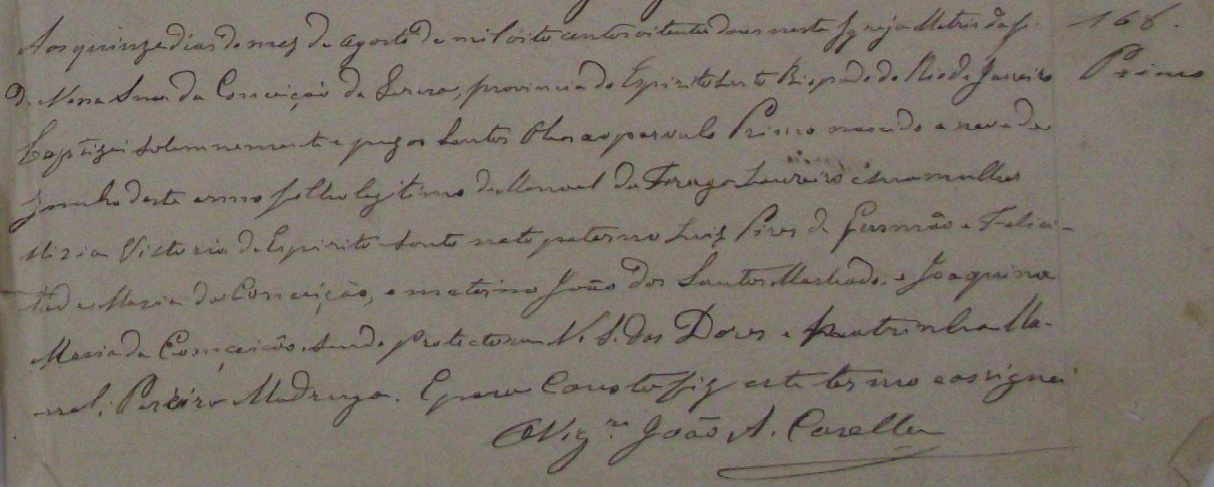 Aos quinze dias do mez de Agosto de mil oito centos oitenta dous nesta Igreja Matriz da F. 168.
de Nossa Snra da Conceição da Serra, provincia do Espirito Santo Bispado do Rio de Janeiro Primo
Baptizei solemnemente e puz os Santos Oleos ao parvulo Primo nascido a nove de
Junho deste anno filho legitimo de Manoel da Fraga Loureiro e sua mulher
Maria Victoria do Espirito Santo neto paterno Luiz Pires de Gusmão e Felici-
Maria da Conceição, e materno João dos Santos Machado e Joaquina
Maria da Conceição. Sendo protectora N. S. das Dores e Ma-
noel Pereira Madruga. E para Constar fiz este termo e assignei
O Vigro João A. Casella